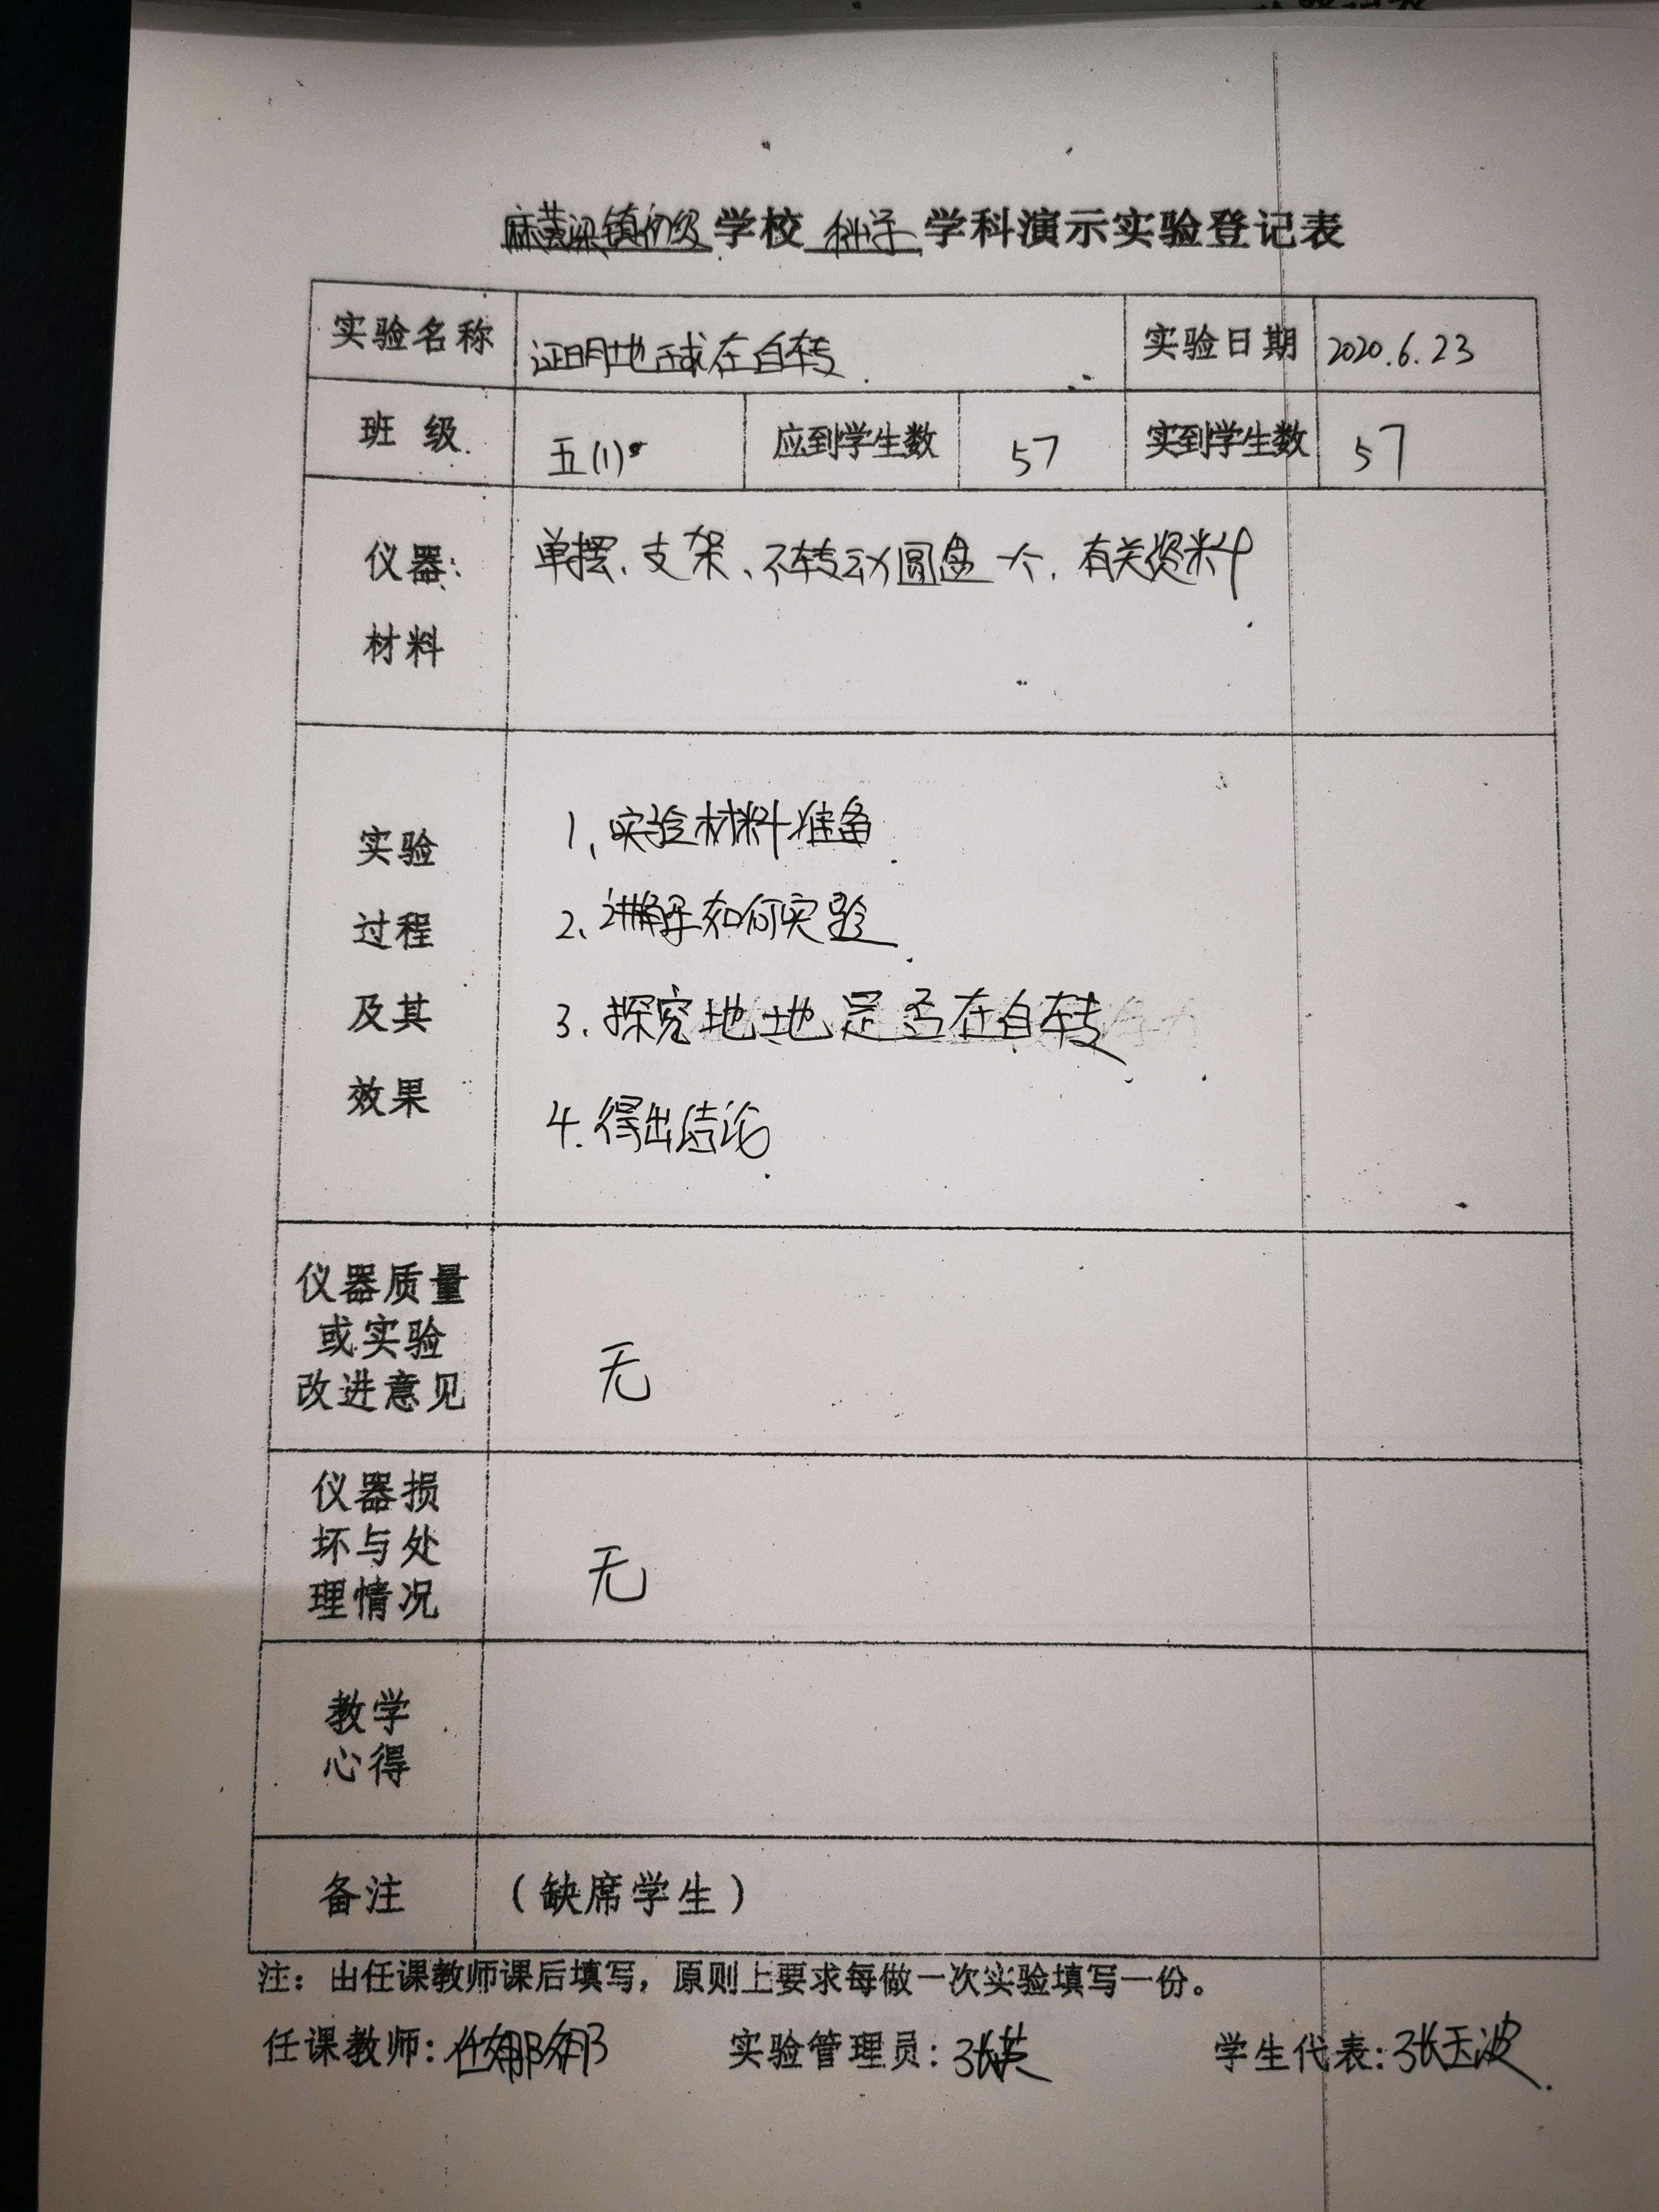 麻黄梁镇初级学校 科学 学科演示实验登记表
实验名称 证明地球在自转 实验日期 2020.6.23
班 级 五(1) 应到学生数 57 实到学生数 57
仪器: 单摆、支架、不转动圆盘一个、有关资料
材料
实验 1、实验材料准备
过程 2、讲解如何实验
及其 3.探究地地是否在自转
效果 4.得出结论
仪器质量
或实验
改进意见 无
仪器损
坏与处
理情况 无
教学
心得
备注 (缺席学生)
注:由任课教师课后填写,原则上要求每做一次实验填写一份。
任课教师:任娜娜 实验管理员:张英 学生代表:张玉波